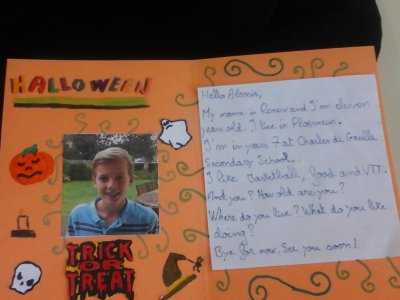 HALLOWEEN
TRICK
OR
TREAT
Hello Alexis,
My name is and I'm eleven
years old. I live in Ploemeur.
I'm in years 7 at Charles de Gaulle
Secondary School.
I like basketball, food and
And you? How old are you?
Where do you live? What do you like
doing?
Bye for now. See you soon!